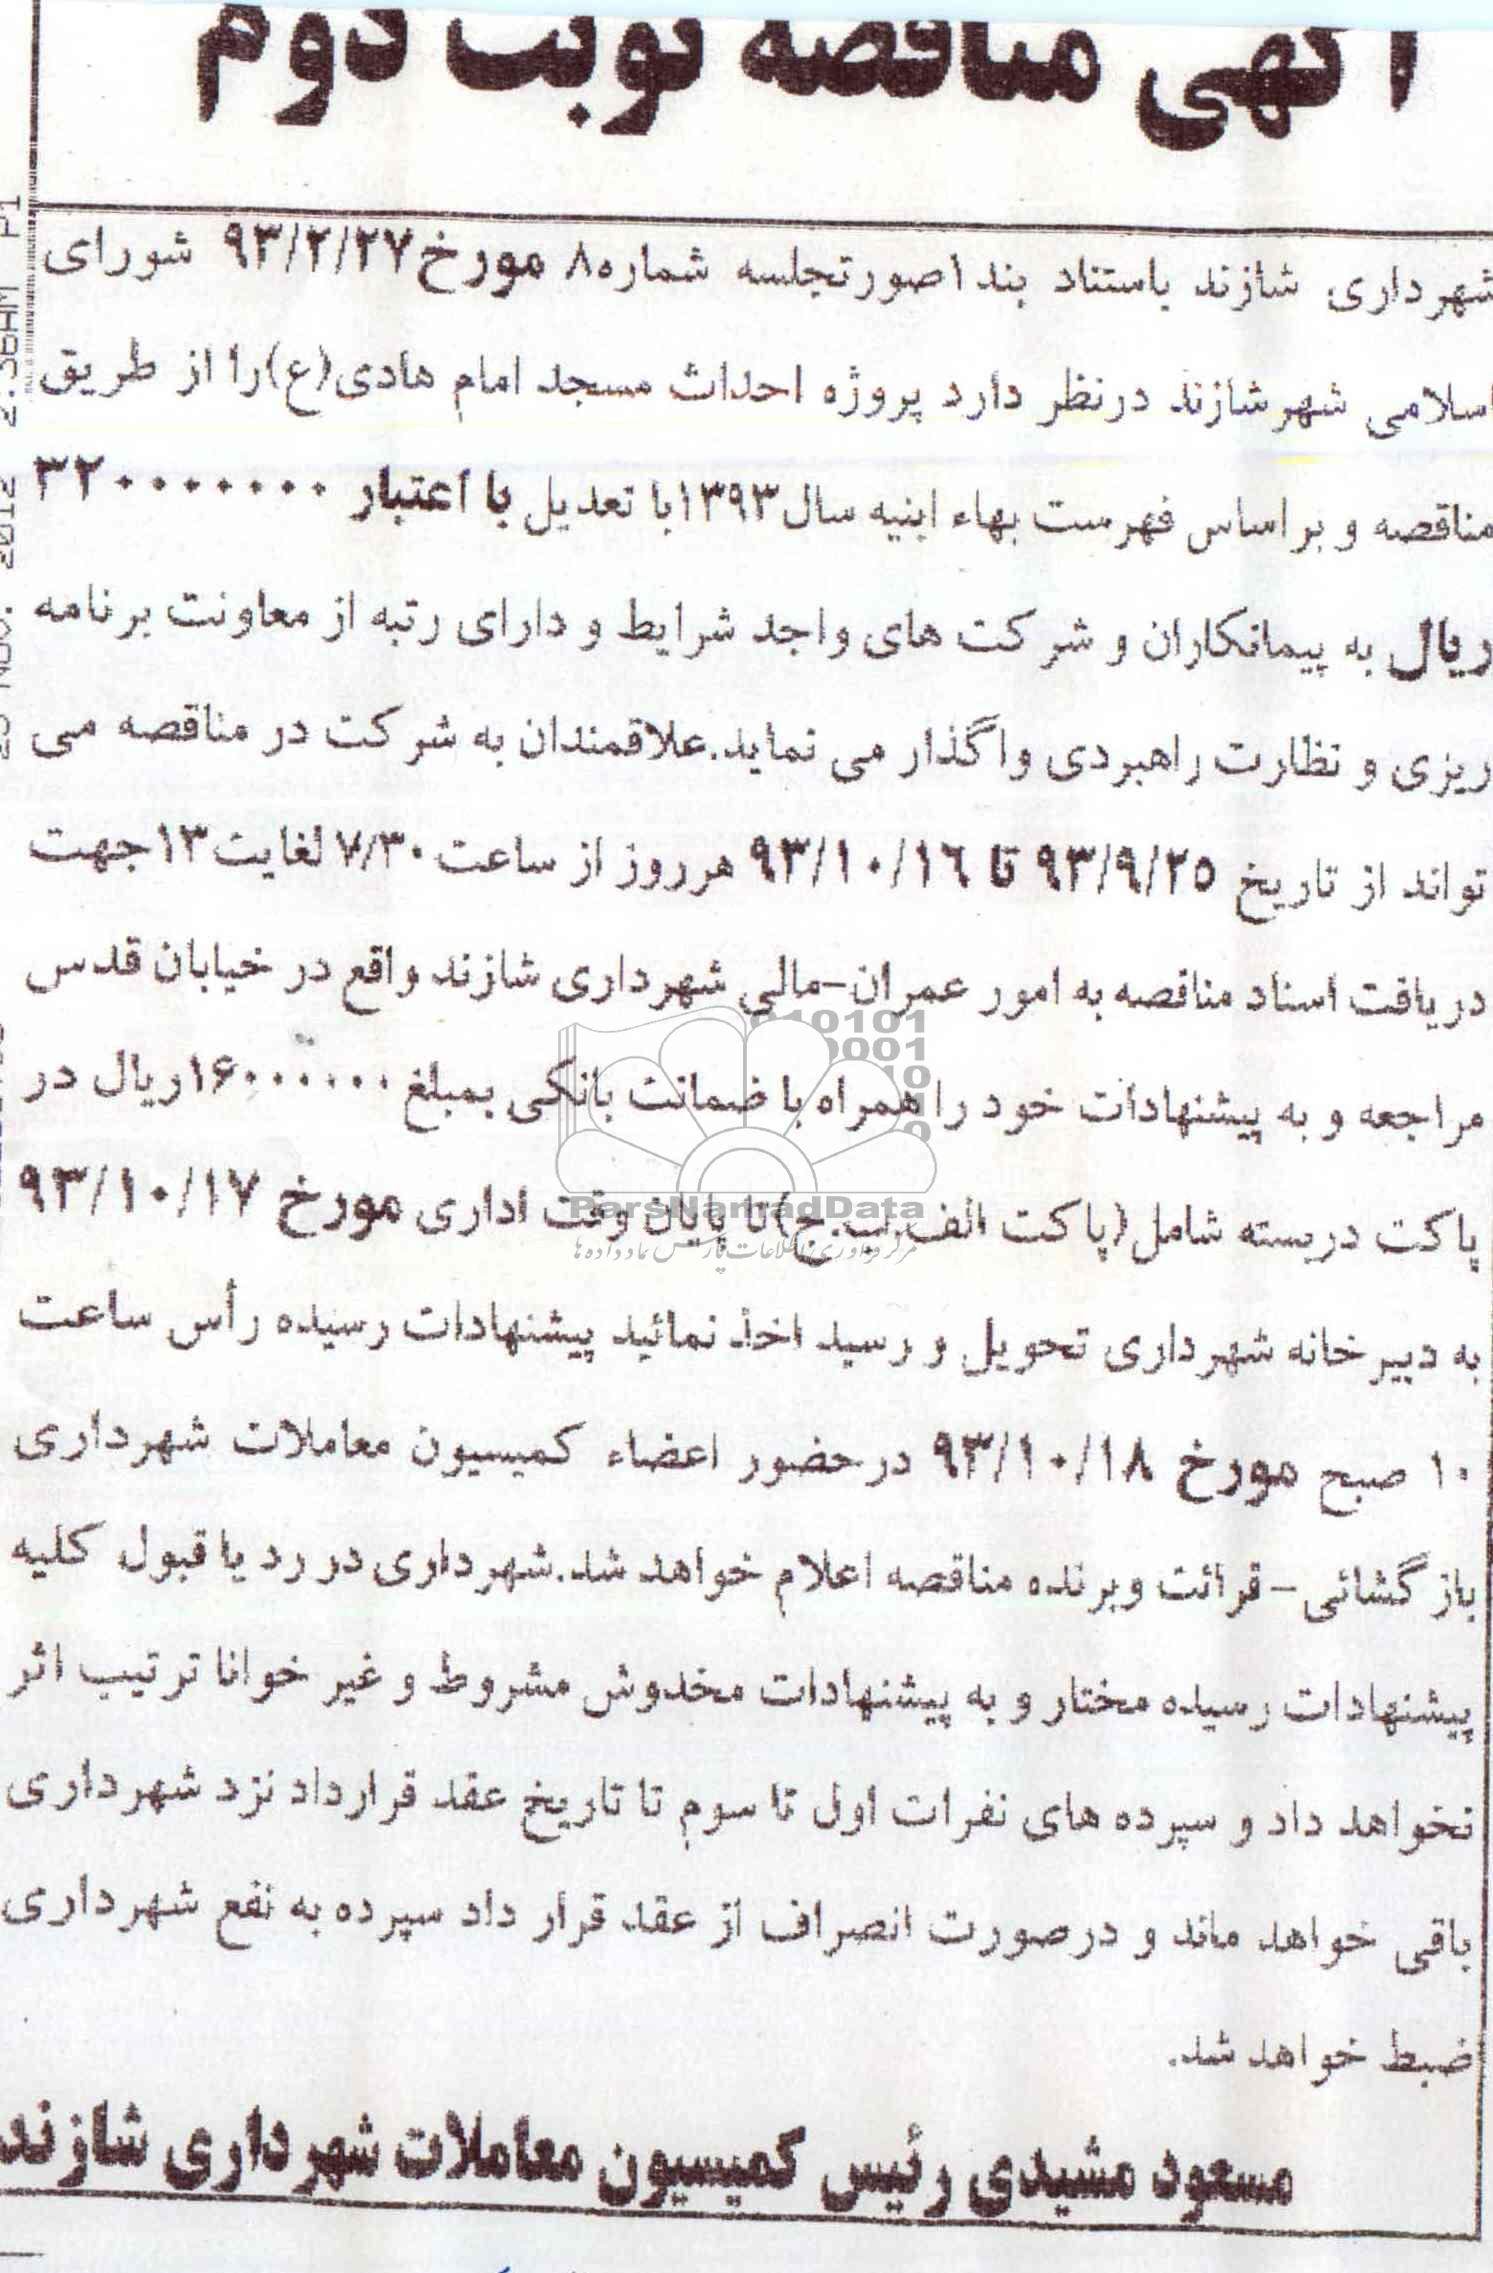 آگهی مناقصه نوبت دوم
شهرداری شازند باستناد بند۱صورتجلسه شماره۸ مورخ۹۳/۲/۲۷ شورای
اسلامی شهرشازند درنظر دارد پروژه احداث مسجد امام هادی(ع)را از طریق
مناقصه و براساس فهرست بهاء ابنیه سال۱۳۹۳با تعدیل با اعتبار ۳۲۰۰۰۰۰۰۰
ریال به پیمانکاران و شرکت های واجد شرایط و دارای رتبه از معاونت برنامه
ریزی و نظارت راهبردی واگذار می نماید.علاقمندان به شرکت در مناقصه می
تواند از تاریخ ۹۳/۹/۲۵ تا ۹۳/۱۰/۱۶ هرروز از ساعت ۷/۳۰ لغایت۱۳جهت
دریافت اسناد مناقصه به امور عمران-مالی شهرداری شازند واقع در خیابان قدس
مراجعه و به پیشنهادات خود را همراه با ضمانت بانکی بمبلغ ۱۶۰۰۰۰۰۰ریال در
پاکت دربسته شامل(پاکت الف.ب.ج)تا پایان وقت اداری مورخ ۹۳/۱۰/۱۷
به دبیرخانه شهرداری تحویل و رسید اخذ نمائید پیشنهادات رسیده رأس ساعت
۱۰ صبح مورخ ۹۳/۱۰/۱۸ درحضور اعضاء کمیسیون معاملات شهرداری
بازگشائی-قرائت وبرنده مناقصه اعلام خواهد شد.شهرداری در رد یا قبول کلیه
پیشنهادات رسیده مختار و به پیشنهادات مخدوش مشروط و غیر خوانا ترتیب اثر
نخواهد داد و سپرده های نفرات اول تا سوم تا تاریخ عقد قرارداد نزد شهرداری
باقی خواهد ماند و درصورت انصراف از عقد قرار داد سپرده به نفع شهرداری
ضبط خواهد شد.
مسعود مشیدی رئیس کمیسیون معاملات شهرداری شازند
ParsNamadData
مرکز فرآوری اطلاعات پارس نماد داده ها